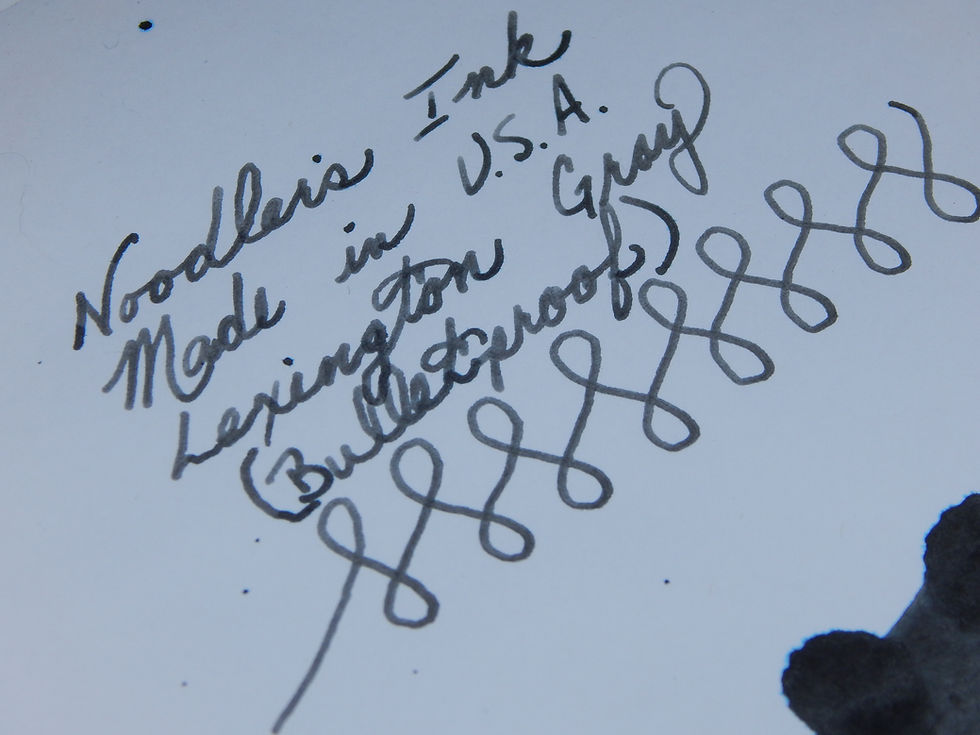 Noodler's Ink
Made in U.S.A.
Lexington Gray
(Bulletproof)